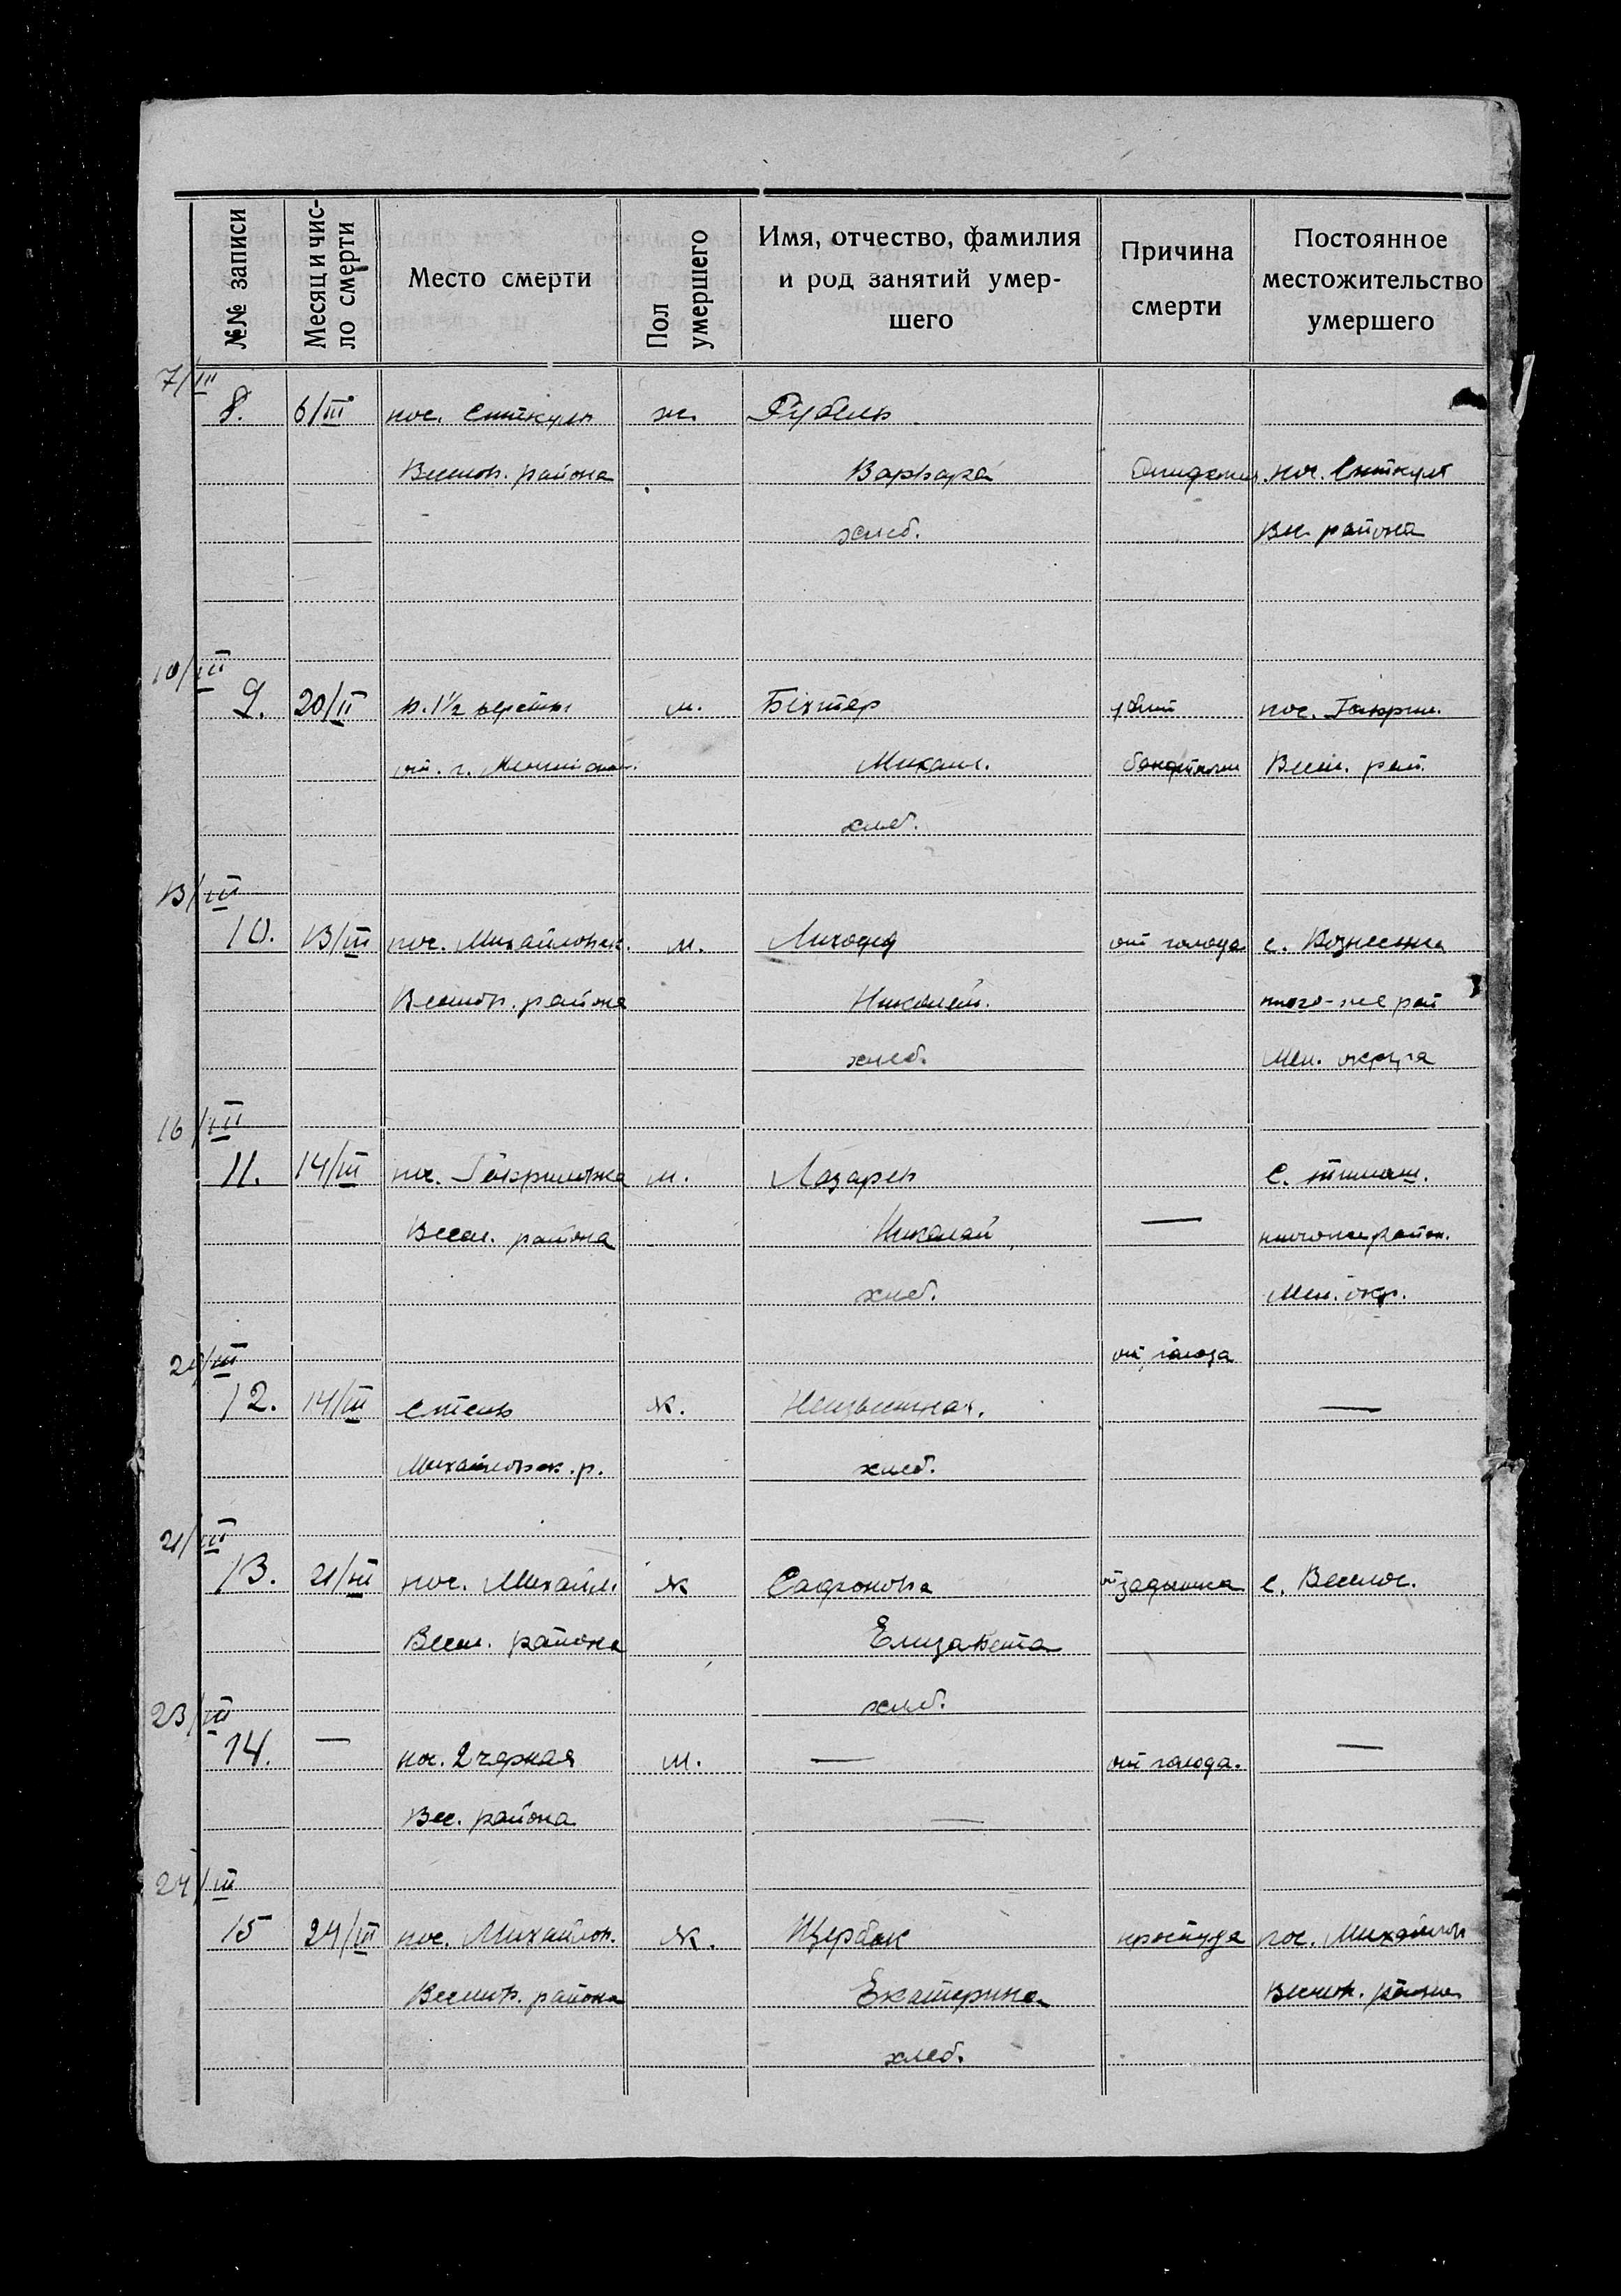 №№ записи
Месяц и чис-
ло смерти
Место смерти
Пол
умершего
Имя, отчество, фамилия
и род занятий умер-
шего
Причина
смерти
Постоянное
местожительство
умершего
7/III
8. 6/III пос. ж. Рубель
Веселов. района Варвара пос.
хлеб. Вес. района
10/III
9. 20/II в 1½ верстах м. Біхтер убит пос. Гаврил.
от г. Михаил. Весел. рай.
хлеб.
13/III
10. 13/III пос. Михайловск. м. Лиходид от голода с. Вознесенка
Веселов. района Николай. того-же рай
хлеб. Мел. округа
16/III
11. 14/III пос. Гавриловка м. Лазарев С.
Весел. района Николай — района.
хлеб. Мел. окр.
от голода
21/III
12. 14/III степь ж. Неизвестная. —
Михайловск. р. хлеб.
21/III
13. 21/III пос. Михайл. ж Сафронова от задышка с. Веселое.
Весел. района Елизавета
хлеб.
23/III
14. — пос. 2 черная м. — от голода. —
Вес. района —
24/III
15 24/III пос. Михайлов. ж. Щербак простуда пос. Михайлов
Веселов. района Екатерина Веселов. района
хлеб.